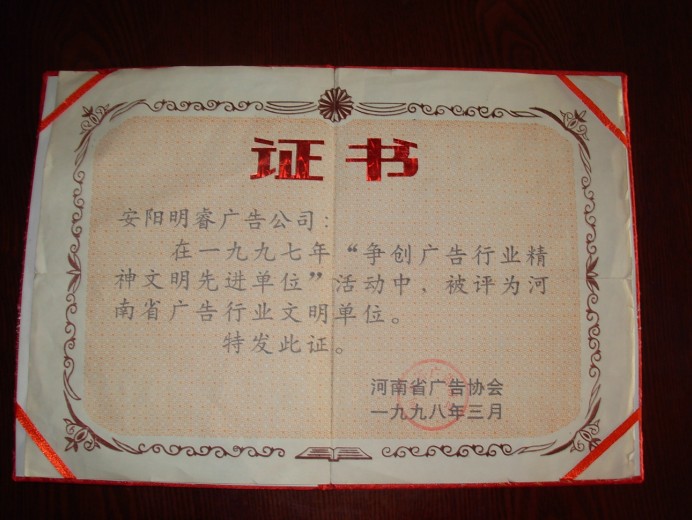 证书
安阳明睿广告公司：
在一九九七年“争创广告行业精
神文明先进单位”活动中，被评为河
南省广告行业文明单位。
特发此证。
河南省广告协会
一九九八年三月